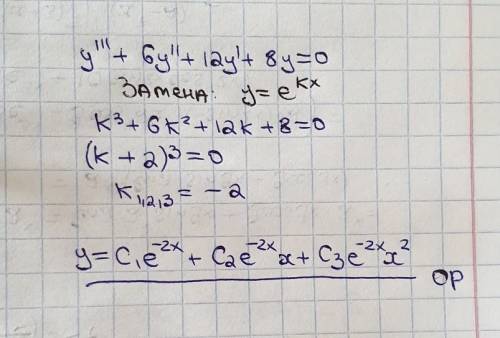 y''' + 6y'' + 12y' + 8y = 0
Замена: y = e^{kx}
k³ + 6k² + 12k + 8 = 0
(k + 2)³ = 0
k₁,₂,₃ = -2
y = C₁e^{-2x} + C₂e^{-2x}x + C₃e^{-2x}x² ОР